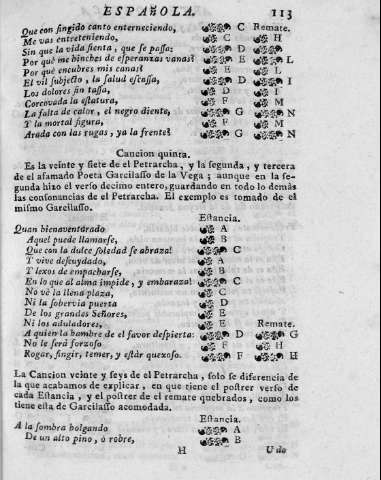 ESPAÑOLA. 113
Que con fingido canto enterneciendo, C Remate.
Me vas entreteniendo, C H
Sin que la vida ſienta, que ſe paſſa; D
Por qué me hinches de eſperanzas vanas? E L
Por qué encubres mis canas? E L
El vil ſubjecto, la ſalud eſcaſſa, D I
Los dolores ſin taſſa, D I
Corcovada la eſtatura, F M
La falta de calor, el negro diente, G N
Y la mortal figura, F M
Arada con las rugas, ya la frente? G N
Cancion quinta.
Es la veinte y ſiete de el Petrarcha, y la ſegunda, y tercera
de el afamado Poeta Garcilaſſo de la Vega; aunque en la ſe-
gunda hizo el verſo decimo entero, guardando en todo lo demàs
las conſonancias de el Petrarcha. El exemplo es tomado de el
miſmo Garcilaſſo.
Eſtancia.
Quan bienaventurado A
Aquel puede llamarſe, B
Que con la dulce ſoledad ſe abraza! C
Y vive deſcuydado, A
Y lexos de empacharſe, B
En lo que al alma impide, y embaraza! C
No vè la llena plaza, C
Ni la ſobervia puerta D
De los grandes Señores, E
Ni los aduladores, E Remate.
A quien la hambre de el favor deſpierta: D G
No le ſerá forzoſo F H
Rogar, fingir, temer, y eſtàr quexoſo. F H
La Cancion veinte y ſeys de el Petrarcha, ſolo ſe diferencia de
la que acabamos de explicar, en que tiene el poſtrer verſo de
cada Eſtancia, y el poſtrer de el remate quebrados, como los
tiene eſta de Garcilaſſo acomodada.
Eſtancia.
A la ſombra holgando A
De un alto pino, ò robre, B
H U do